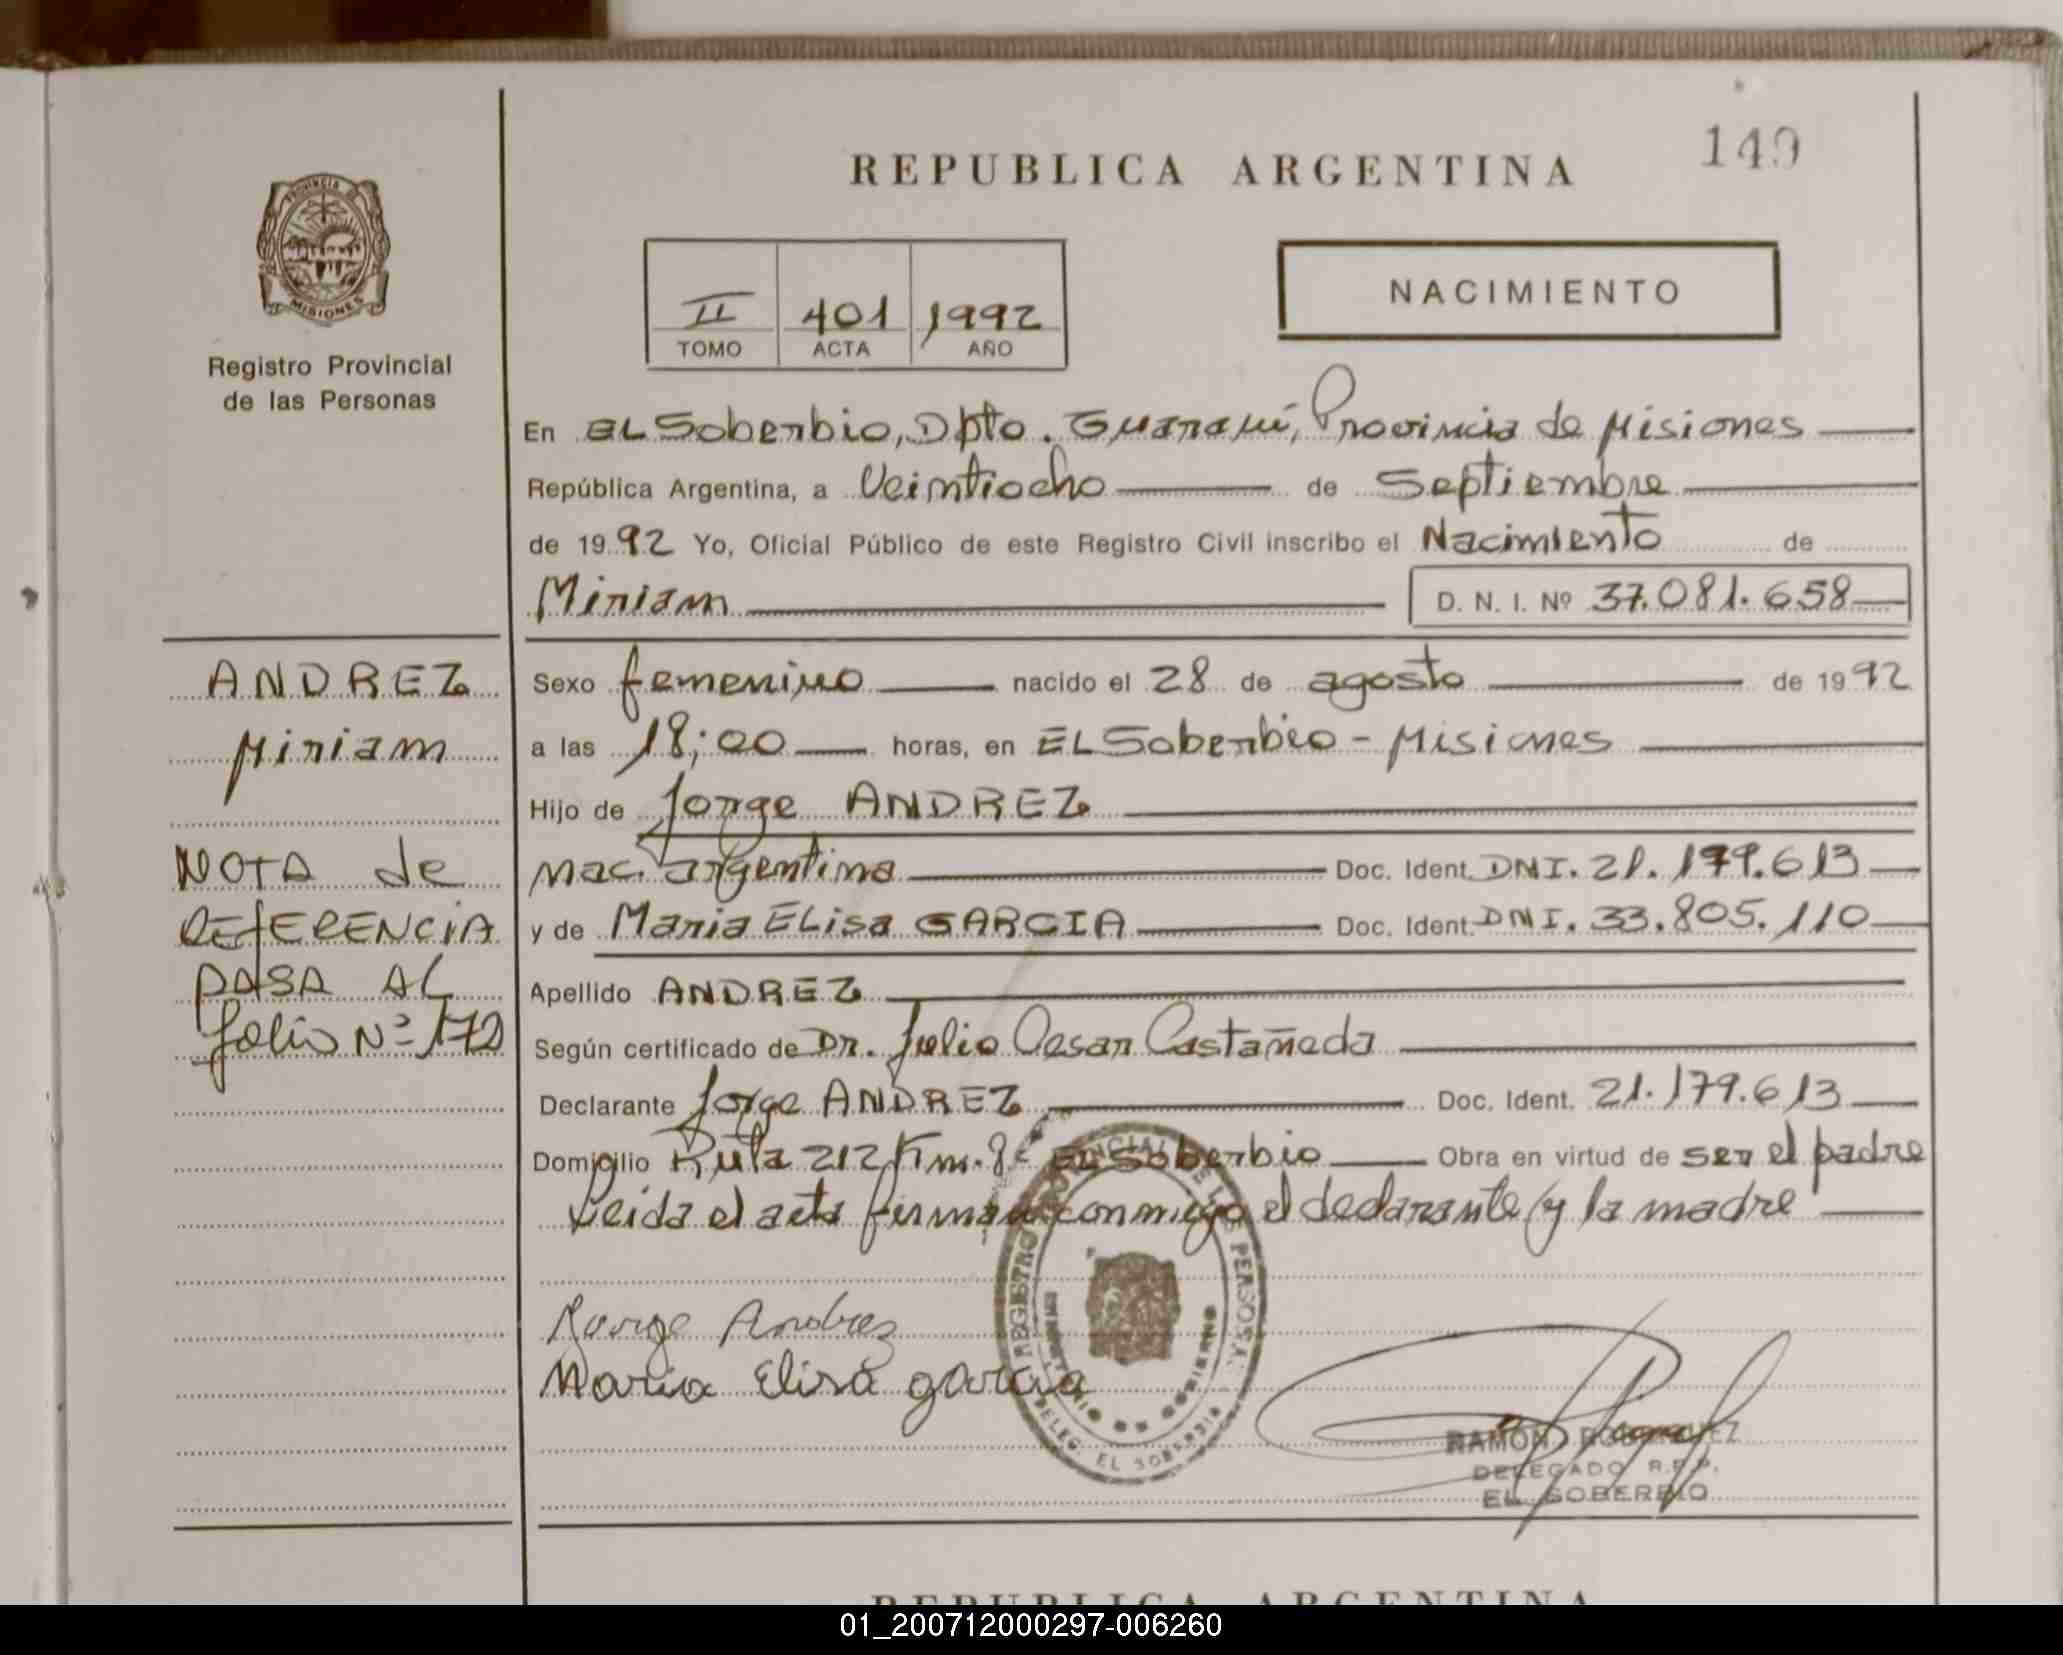 149
REPUBLICA ARGENTINA
PROVINCIA DE
MISIONES
Registro Provincial
de las Personas
II 401 1992
TOMO ACTA AÑO
NACIMIENTO
En EL Soberbio, Dpto. Guaraní, Provincia de Misiones
República Argentina, a Veintiocho de Septiembre
de 1992 Yo, Oficial Público de este Registro Civil inscribo el Nacimiento de
Miriam D. N. I. Nº 37.081.658
ANDREZ
Miriam
NOTA de
REfERENCIA
PASA AL
folio Nº 172
Sexo femenino nacido el 28 de agosto de 1992
a las 18;00 horas, en EL Soberbio - Misiones
Hijo de Jorge ANDREZ
nac. argentina Doc. Ident. DNI. 21.179.613
y de Maria ELisa GARCIA Doc. Ident. DNI. 33.805.110
Apellido ANDREZ
Según certificado de Dr. Julio Cesar Castañeda
Declarante Jorge ANDREZ Doc. Ident. 21.179.613
Domicilio Ruta 212 Km. 8 EL Soberbio Obra en virtud de ser el padre
Leida el acta firman conmigo el declarante y la madre
Jorge Andrez
Maria Elisa garcia
REGISTRO PROVINCIAL DE LAS PERSONAS
DELEG. EL SOBERBIO
RAMON RODRIGUEZ
DELEGADO R.P.P.
EL SOBERBIO
REPUBLICA ARGENTINA
01_200712000297-006260